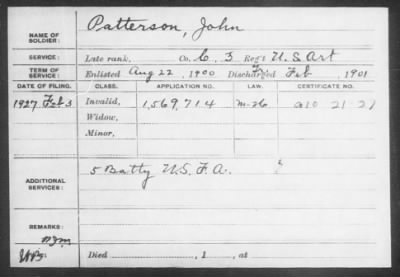 NAME OF SOLDIER: Patterson, John
SERVICE: Late rank, Co. C, 3 Reg't U.S. Art
TERM OF SERVICE: Enlisted Aug 22, 1900 Discharged Feb, 1901
DATE OF FILING. CLASS. APPLICATION NO. LAW. CERTIFICATE NO.
1927 Feb 3 Invalid, 1,569,714
Widow,
Minor,
ADDITIONAL SERVICES: 5 Batty U.S.F.A.
REMARKS:
Died, 1, at